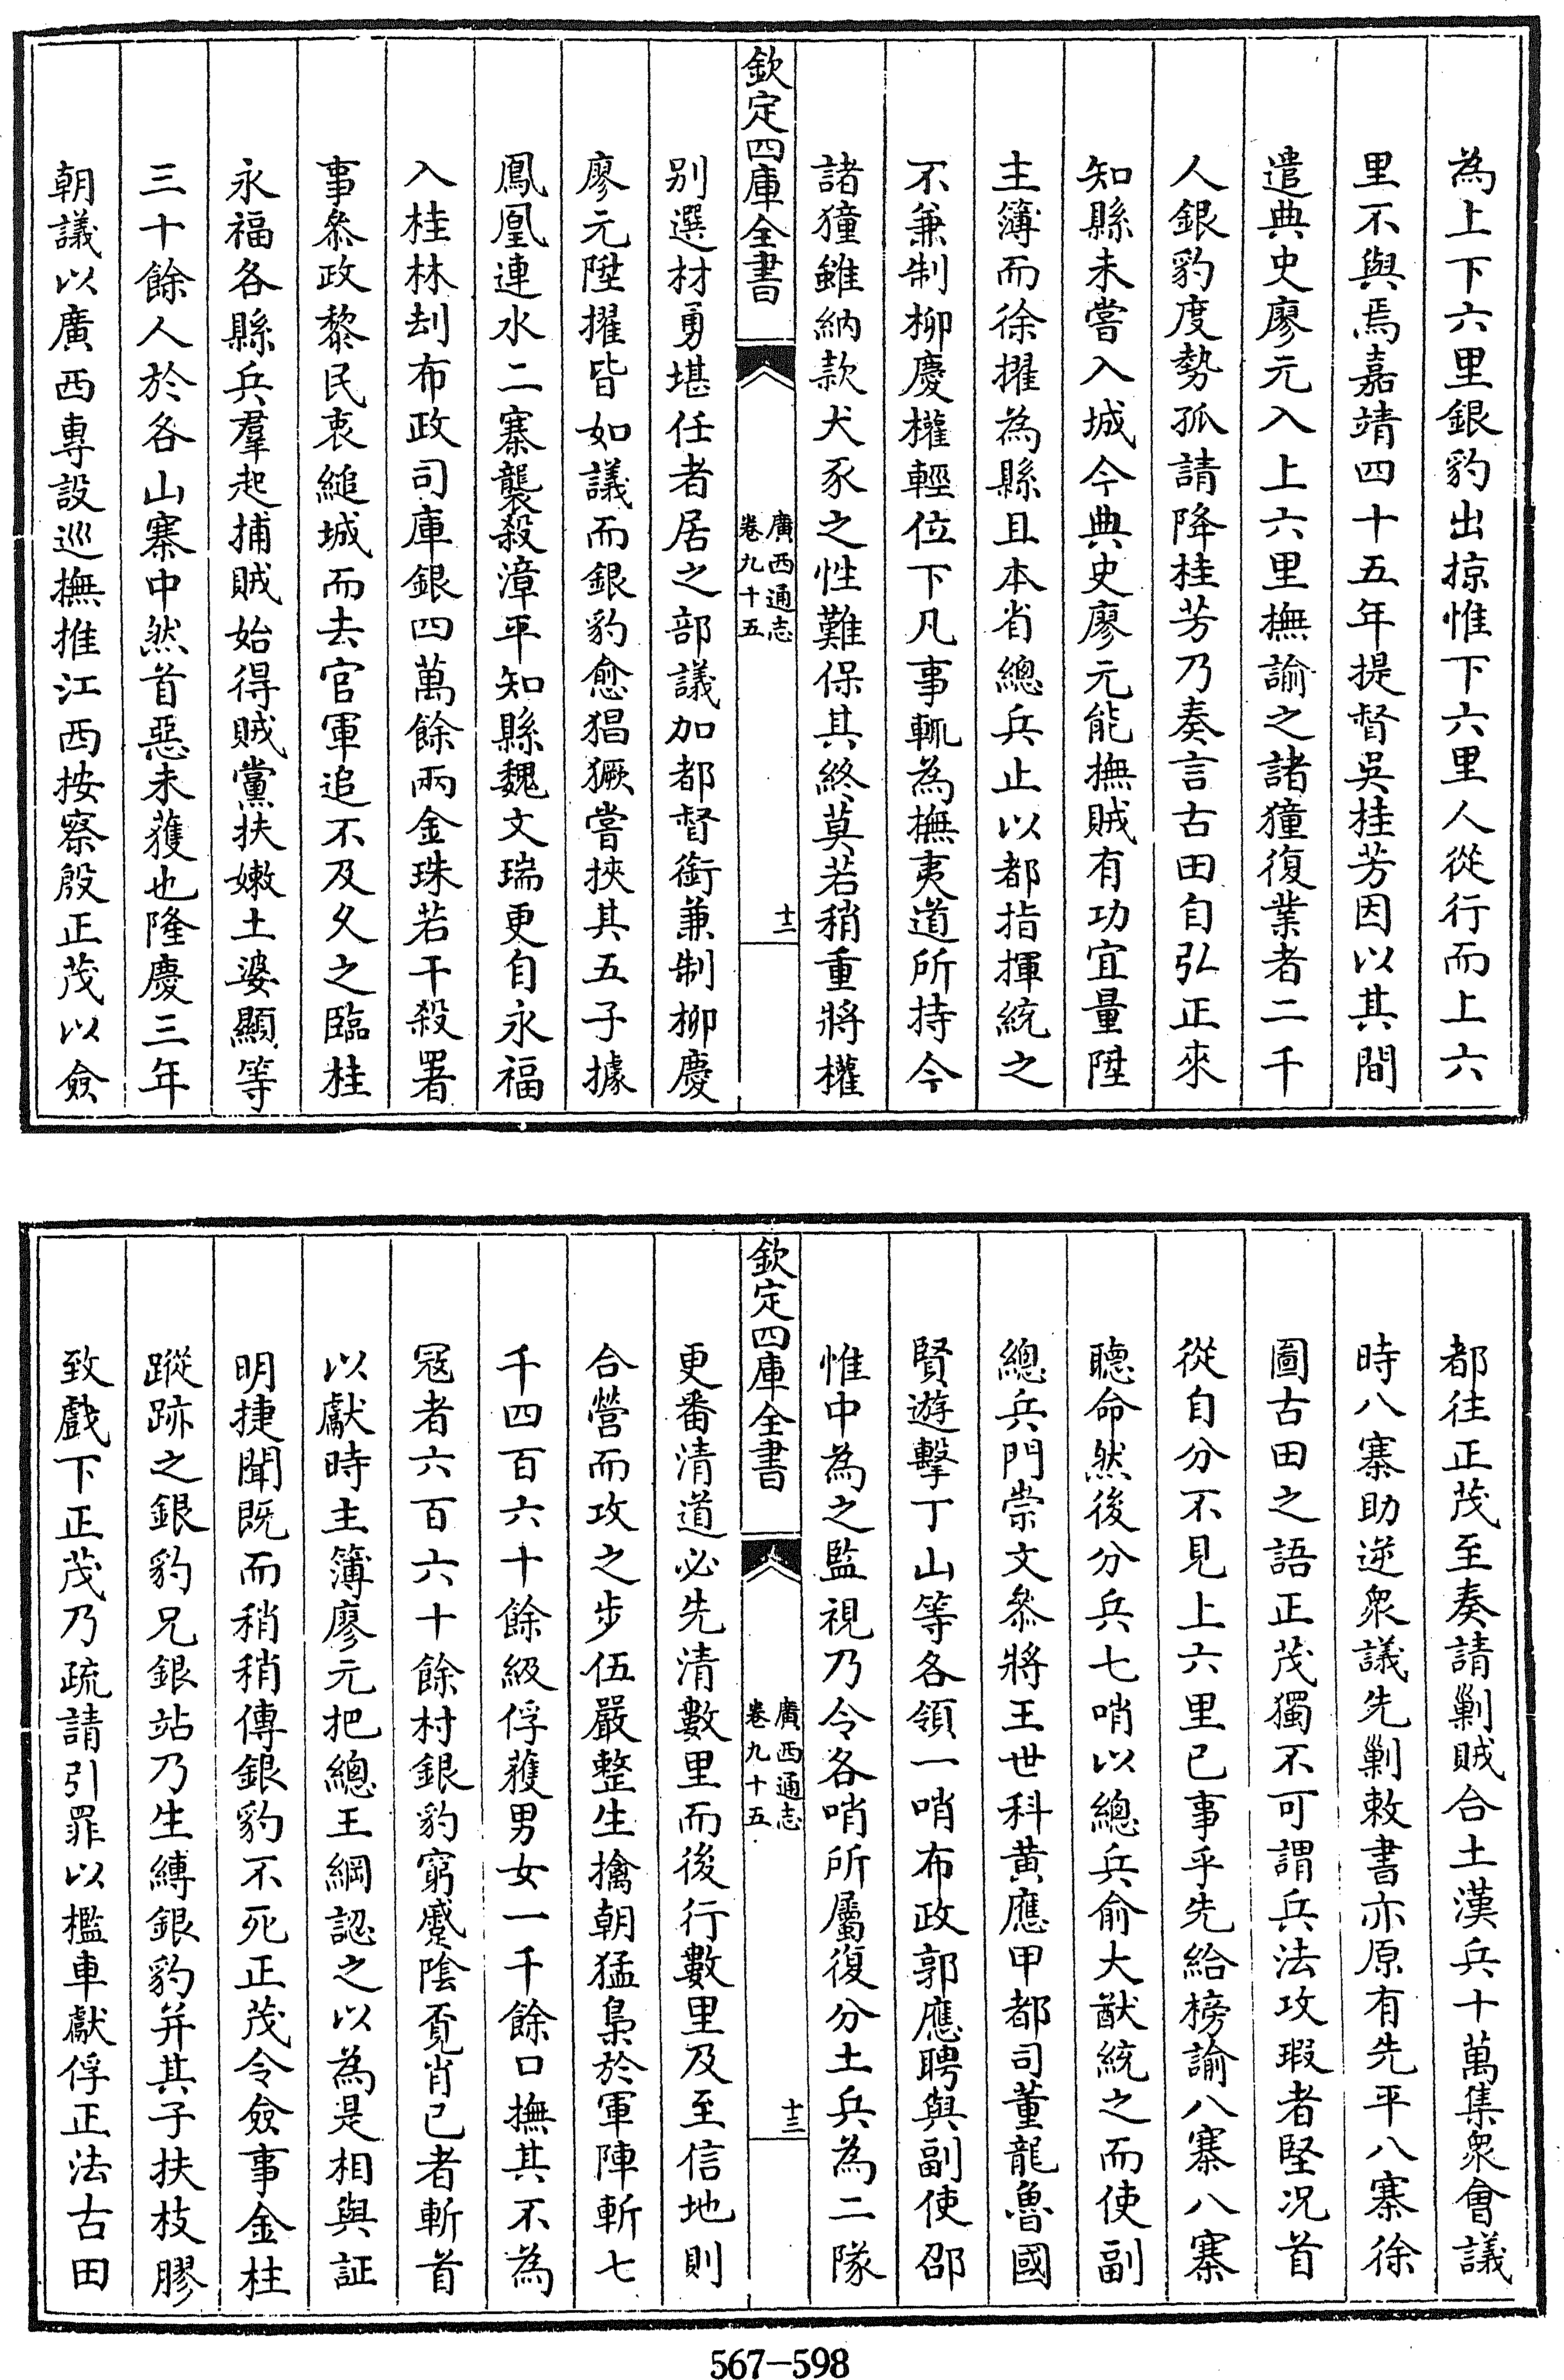 為上下六里銀豹出掠惟下六里人從行而上六
里不與焉嘉靖四十五年提督吳桂芳因以其間
遣典史廖元入上六里撫諭之諸獞復業者二千
人銀豹度勢孤請降桂芳乃奏言古田自弘正來
知縣未嘗入城今典史廖元能撫賊有功宜量陞
主簿而徐擢為縣且本省總兵止以都指揮統之
不兼制柳慶權輕位下凡事輒為撫夷道所持今
諸獞雖納款犬豕之性難保其終莫若稍重將權
欽定四庫全書
廣西通志
卷九十五
十二
別選材勇堪任者居之部議加都督銜兼制柳慶
廖元陞擢皆如議而銀豹愈猖獗嘗挾其五子據
鳳凰連水二寨襲殺漳平知縣魏文瑞更自永福
入桂林刦布政司庫銀四萬餘兩金珠若干殺署
事叅政黎民衷縋城而去官軍追不及久之臨桂
永福各縣兵羣起捕賊始得賊黨扶嫩土婆顯等
三十餘人於各山寨中然首惡未獲也隆慶三年
朝議以廣西專設巡撫推江西按察殷正茂以僉
都往正茂至奏請剿賊合土漢兵十萬集衆會議
時八寨助逆衆議先剿敕書亦原有先平八寨徐
圖古田之語正茂獨不可謂兵法攻瑕者堅况首
從自分不見上六里已事乎先給榜諭八寨八寨
聽命然後分兵七哨以總兵俞大猷統之而使副
總兵門崇文叅將王世科黄應甲都司董龍魯國
賢遊擊丁山等各領一哨布政郭應聘與副使邵
惟中為之監視乃令各哨所屬復分土兵為二隊
欽定四庫全書
廣西通志
卷九十五
十三
更番清道必先清數里而後行數里及至信地則
合營而攻之步伍嚴整生擒朝猛梟於軍陣斬七
千四百六十餘級俘獲男女一千餘口撫其不為
寇者六百六十餘村銀豹窮蹙陰覓肖已者斬首
以獻時主簿廖元把總王綱認之以為是相與証
明捷聞既而稍稍傳銀豹不死正茂令僉事金柱
蹤跡之銀豹兄銀站乃生縛銀豹并其子扶枝膠
致戲下正茂乃疏請引罪以檻車獻俘正法古田
567—598